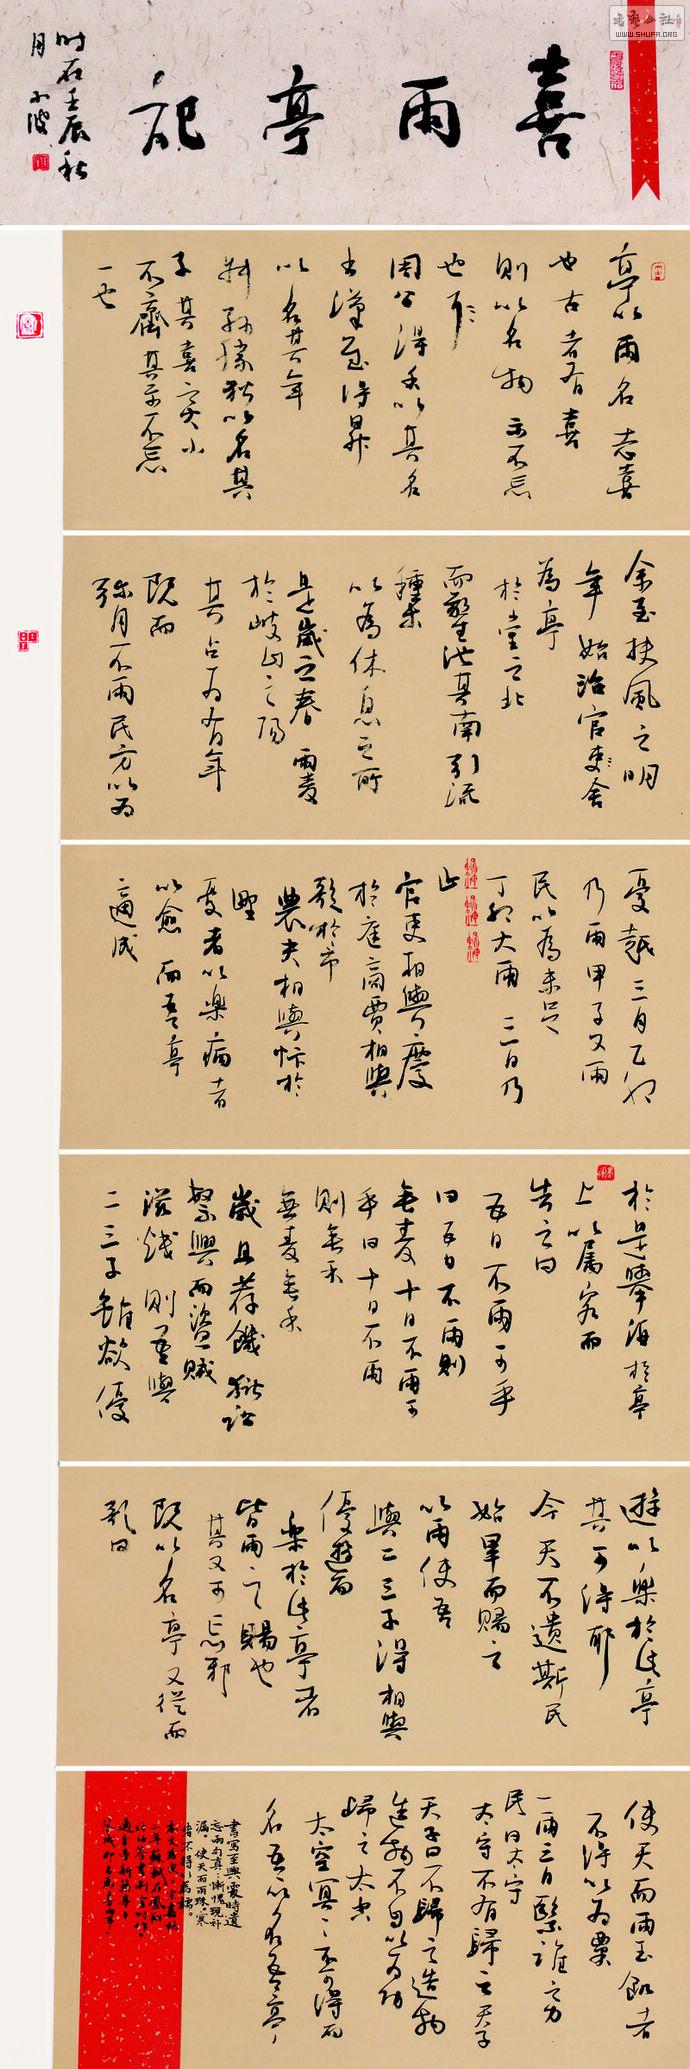 喜雨亭記
時在壬辰秋
月小波
書法公社
WWW.SHUFA.ORG
亭以雨名志喜
也古者有喜
則以名物示不忘
也
周公得禾以其名
書漢武得鼎
以名其年
叔孫勝狄以名其
子其喜之大小
不齊其示不忘
一也
余至扶風之明
年始治官吏舍
為亭
於堂之北
而鑿池其南引流
種樹
以為休息之所
是歲之春雨麥
於岐山之陽
其占為有年
既而
彌月不雨民方以為
憂越三月乙卯
乃雨甲子又雨
民以為未足
丁卯大雨三日乃
止
官吏相與慶
於庭商賈相與
歌於市
農夫相與忭於
野
憂者以樂病者
以愈而吾亭
適成
於是舉酒於亭
上以屬客而
告之曰
五日不雨可乎
曰五日不雨則
無麥十日不雨可
乎曰十日不雨
則無禾
無麥無禾
歲且荐饑獄訟
繁興而盜賊
滋熾則吾與
二三子雖欲優
遊以樂於此亭
其可得耶
今天不遺斯民
始旱而賜之
以雨使吾
與二三子得相與
優遊而
樂於此亭者
皆雨之賜也
其又可忘邪
既以名亭又從而
歌曰
使天而雨玉飢者
不得以為粟
一雨三日繄誰之力
民曰太守
太守不有歸之天子
天子曰不歸之造物
造物不自以為功
歸之太空
太空冥冥不可得而
名吾以名吾亭
書寫至興處時遺
忘雨句真慚愧現補
漏使天而雨珠寒
者不得以為襦